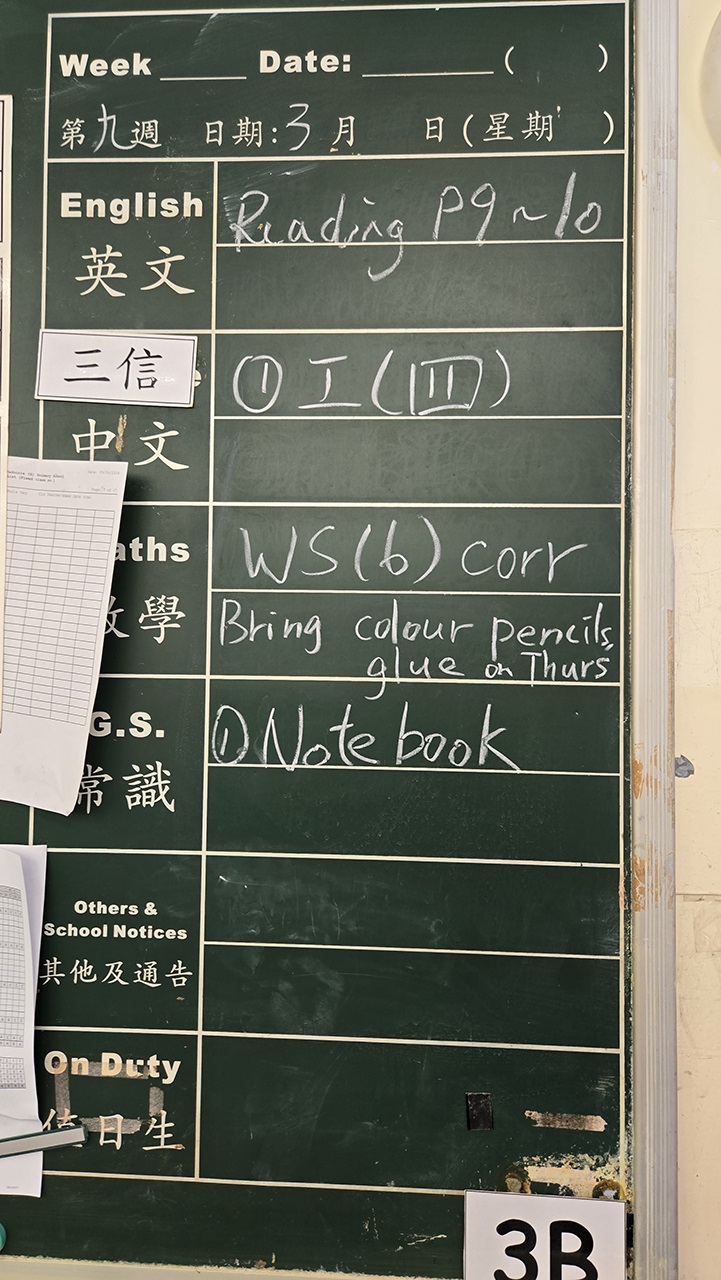 Week ____ Date: ______ (    )
第九週 日期:3月 日(星期 )
English
Reading P9~10
英文
三信
① 工(四)
中文
aths
WS(6) corr
數學
Bring colour pencils,
glue on Thurs
G.S.
① Notebook
常識
Others &
School Notices
其他及通告
On Duty
值日生
3B